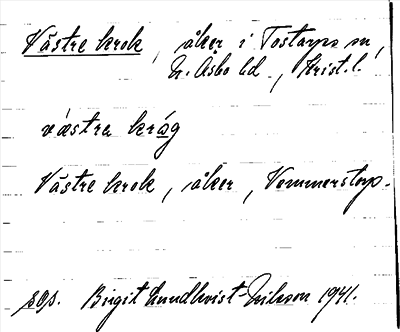 Västre krok, åker i Tostarps sn,
N. Åsbo hd, Krist. l.
västra kråg
Västre krok, åker, Vemmerstorp.
sgs. Birgit Lundkvist-Nilsson 1941.